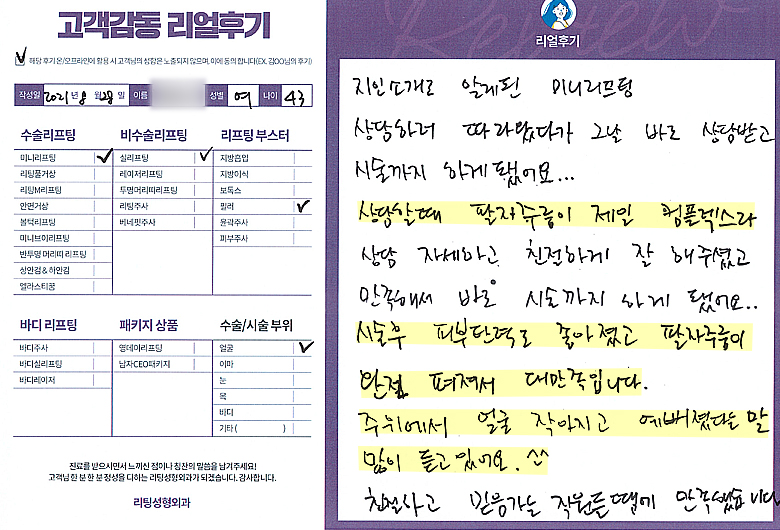 고객감동 리얼후기
해당 후기 온/오프라인에 활용 시 고객님의 성함은 노출되지 않으며, 이에 동의 합니다(EX. 김OO님의 후기)
작성일 2021년 8월 28일 이름 성별 여 나이 43
수술리프팅
미니리프팅
리팅풀거상
리팅M리프팅
안면거상
볼턱리프팅
미니브이리프팅
반투명 머리띠 리프팅
상안검 & 하안검
엘라스티꿈
비수술리프팅
실리프팅
레이저리프팅
투명머리띠리프팅
리팅주사
버네핏주사
리프팅 부스터
지방흡입
지방이식
보톡스
필러
윤곽주사
피부주사
바디 리프팅
바디주사
바디실리프팅
바디레이저
패키지 상품
영데이리프팅
남자CEO패키지
수술/시술 부위
얼굴
이마
눈
목
바디
기타 ( )
진료를 받으시면서 느끼신 점이나 칭찬의 말씀을 남기주세요!
고객님 한 분 한 분 정성을 다하는 리팅성형외과가 되겠습니다. 감사합니다.
리팅성형외과
Review
리얼후기
지인소개로 알게된 미니리프팅
상담하러 따라왔다가 그날 바로 상담받고
시술까지 하게 됐어요...
상담할때 팔자주름이 제일 컴플렉스라
상담 자세하고 친절하게 잘 해주셨고
만족해서 바로 시술까지 하게 됐어요..
시술후 피부탄력도 좋아졌고 팔자주름이
완전 펴져서 대만족입니다.
주위에서 얼굴 작아지고 예뻐졌다는 말
많이 듣고 있어요. ^^
친절하고 믿음가는 직원들 땜에 만족했습니다